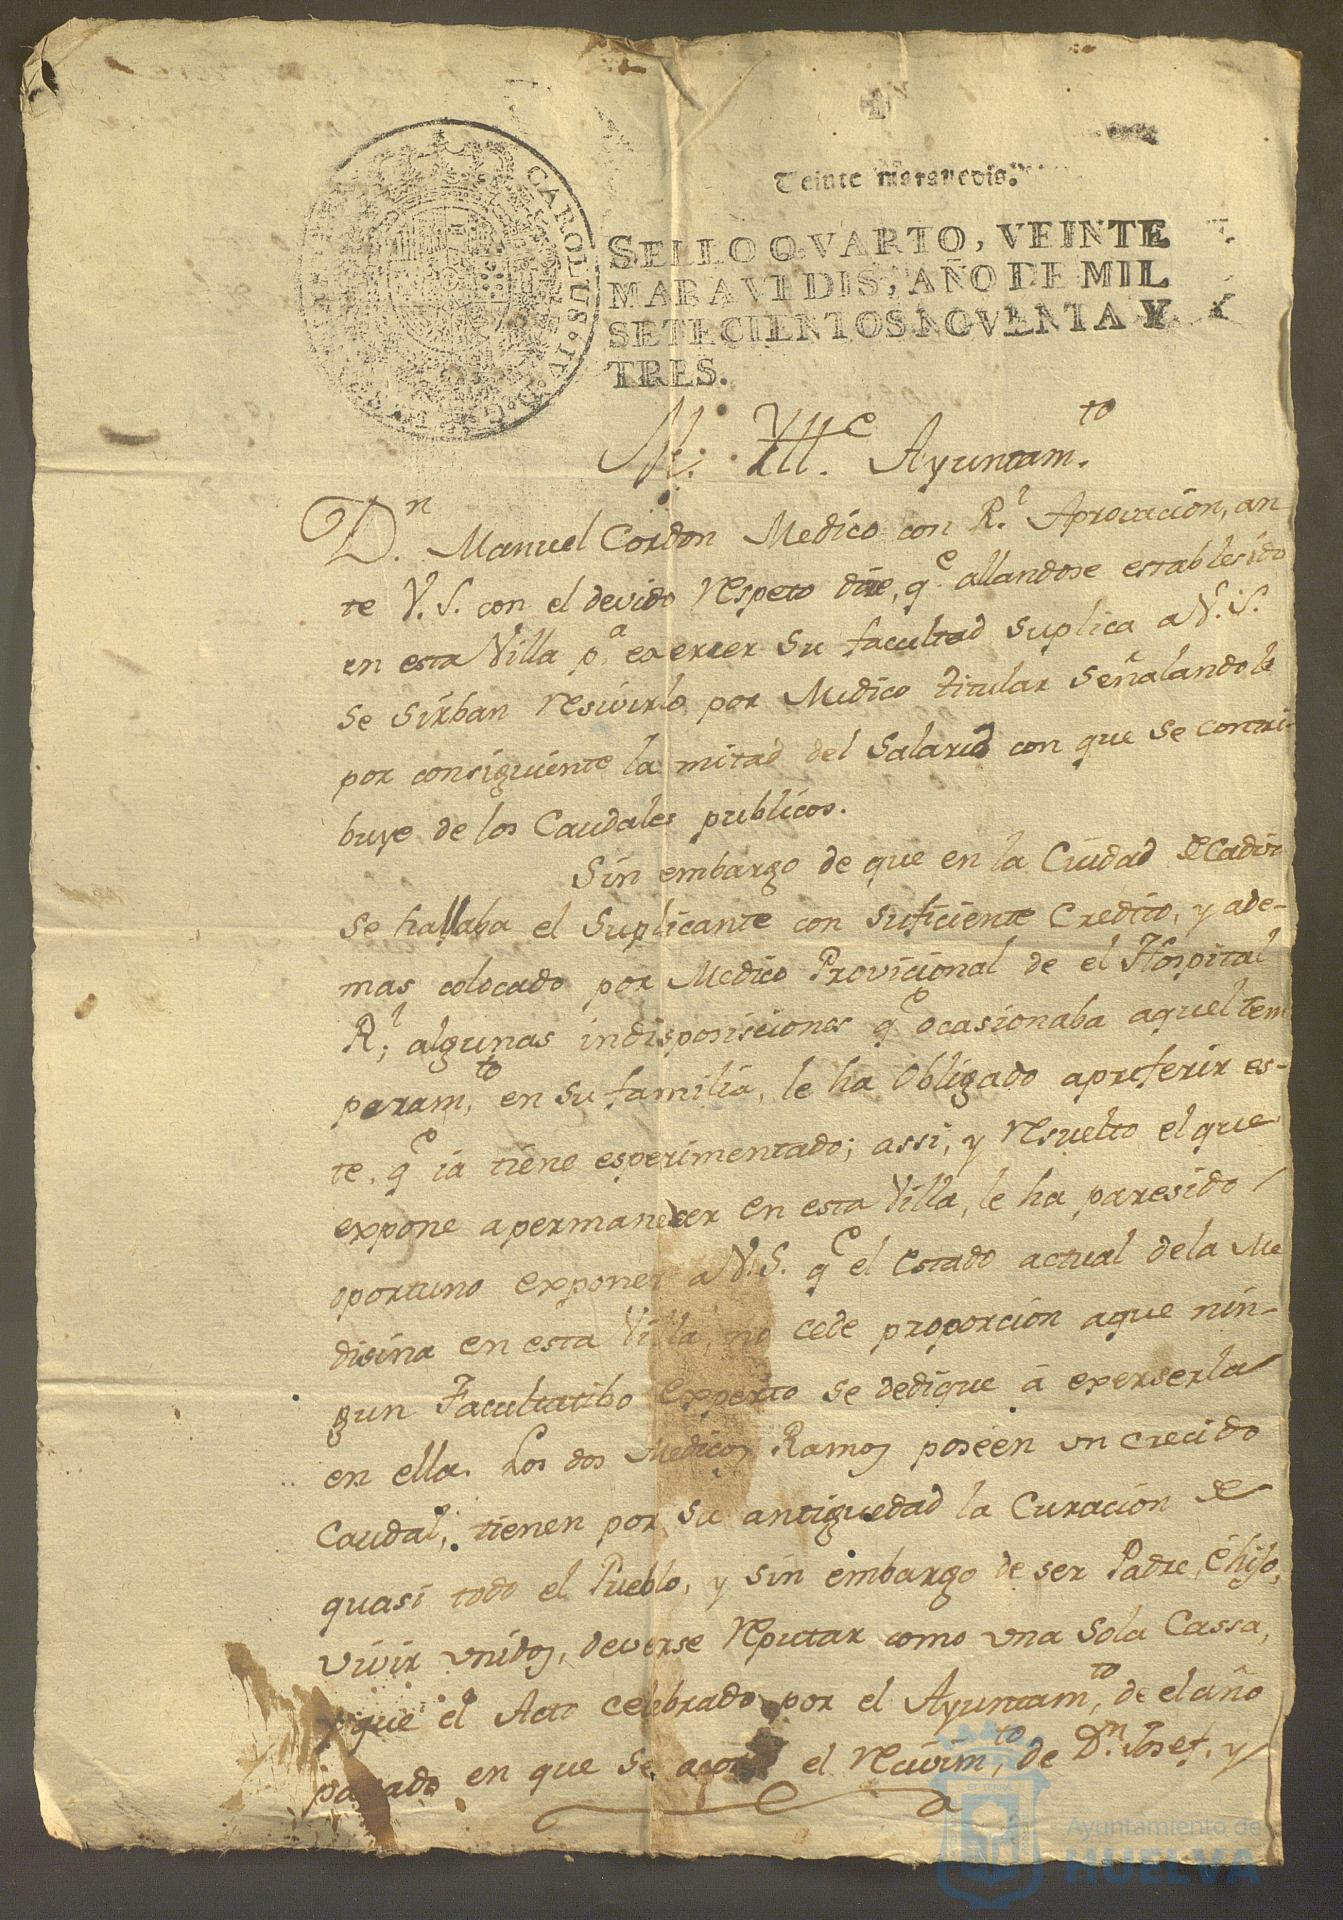 Veinte maravedis.
SELLO QVARTO, VEINTE
MARAVEDIS, AÑO DE MIL
SETECIENTOS NOVENTA Y
TRES.
CAROLUS. IV. D. G.
M. Yll.e Ayuntam.to
D.n Manuel Cordon Medico con R.l Aprovacion, an
te V.S. con el devido respeto dice, q.e allandose establesido
en esta Villa p.a exercer su facultad suplica a V.S.
se sirban resivirlo por Medico titular señalandole
por consiguiente la mitad del salario con que se contri-
buye de los Caudales publicos.
Sin embargo de que en la Ciudad de Cadiz
se hallaba el suplicante con suficiente credito, y ade-
mas colocado por Medico Provicional de el Hospital
R.l, algunas indisposiciones q.e ocasionaba aquel tem
param.to, en su familia, le ha obligado apreferir es-
te, q.e ia tiene esperimentado; assi, y resuelto el que
expone apermanecer en esta Villa, le ha paresido
oportuno exponer a V.S. q.e el estado actual dela Me
disina en esta Villa, no cede proporcion aque nin-
gun Facultatibo experto se dedique á exerserla
en ella. Los dos Medicos Ramos poseen un crecido
Caudal; tienen por su antiguedad la Curacion de
quasi todo el Pueblo, y sin embargo de ser Padre, é hijo,
vivir unidos, deverse reputar como una sola Cassa,
y que el Acto celebrado por el Ayuntam.to, de el año
pasado en que se acordó el recivim.to, de D.n Josef, y
Ayuntamiento de
HUELVA